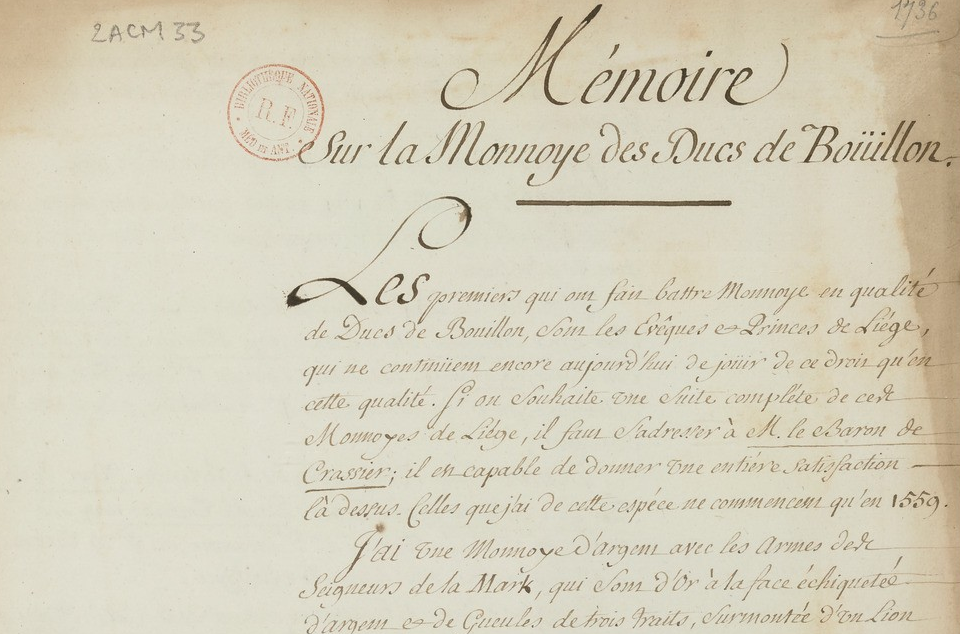 2ACM 33
1736
BIBLIOTHÈQUE NATIONALE
R.F.
MED ET ANT.
Mémoire
Sur la Monnoye des Ducs de Boüillon.
Les premiers qui ont fait battre Monnoye en qualité
de Ducs de Bouillon, sont les Evêques et Princes de Liége,
qui ne continüent encore aujourd'hui de joüir de ce droit qu'en
cette qualité. Si on souhaite une Suite complète de ces
Monnoyes de Liége, il faut s'adresser à M. le Baron de
Crassier; il est capable de donner une entiére satisfaction
là dessus. Celles que j'ai de cette espéce ne commencent qu'en 1559.
J'ai une Monnoye d'argent avec les Armes des
Seigneurs de la Mark, qui sont d'Or à la face échiquetée
d'argent et de Gueules de trois traits, surmontée d'un Lion